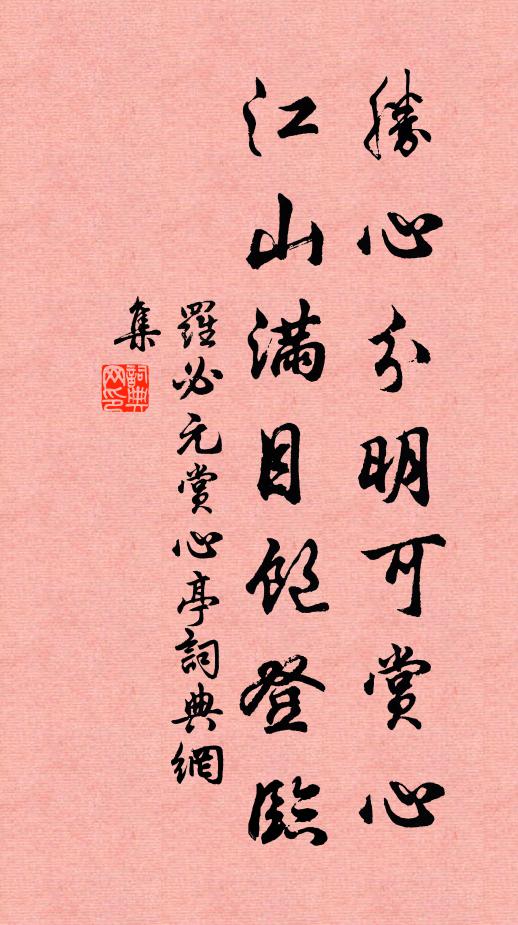 勝心分明可賞心
江山滿目飽登臨
羅必元賞心亭詞典網
集
詞典
网印